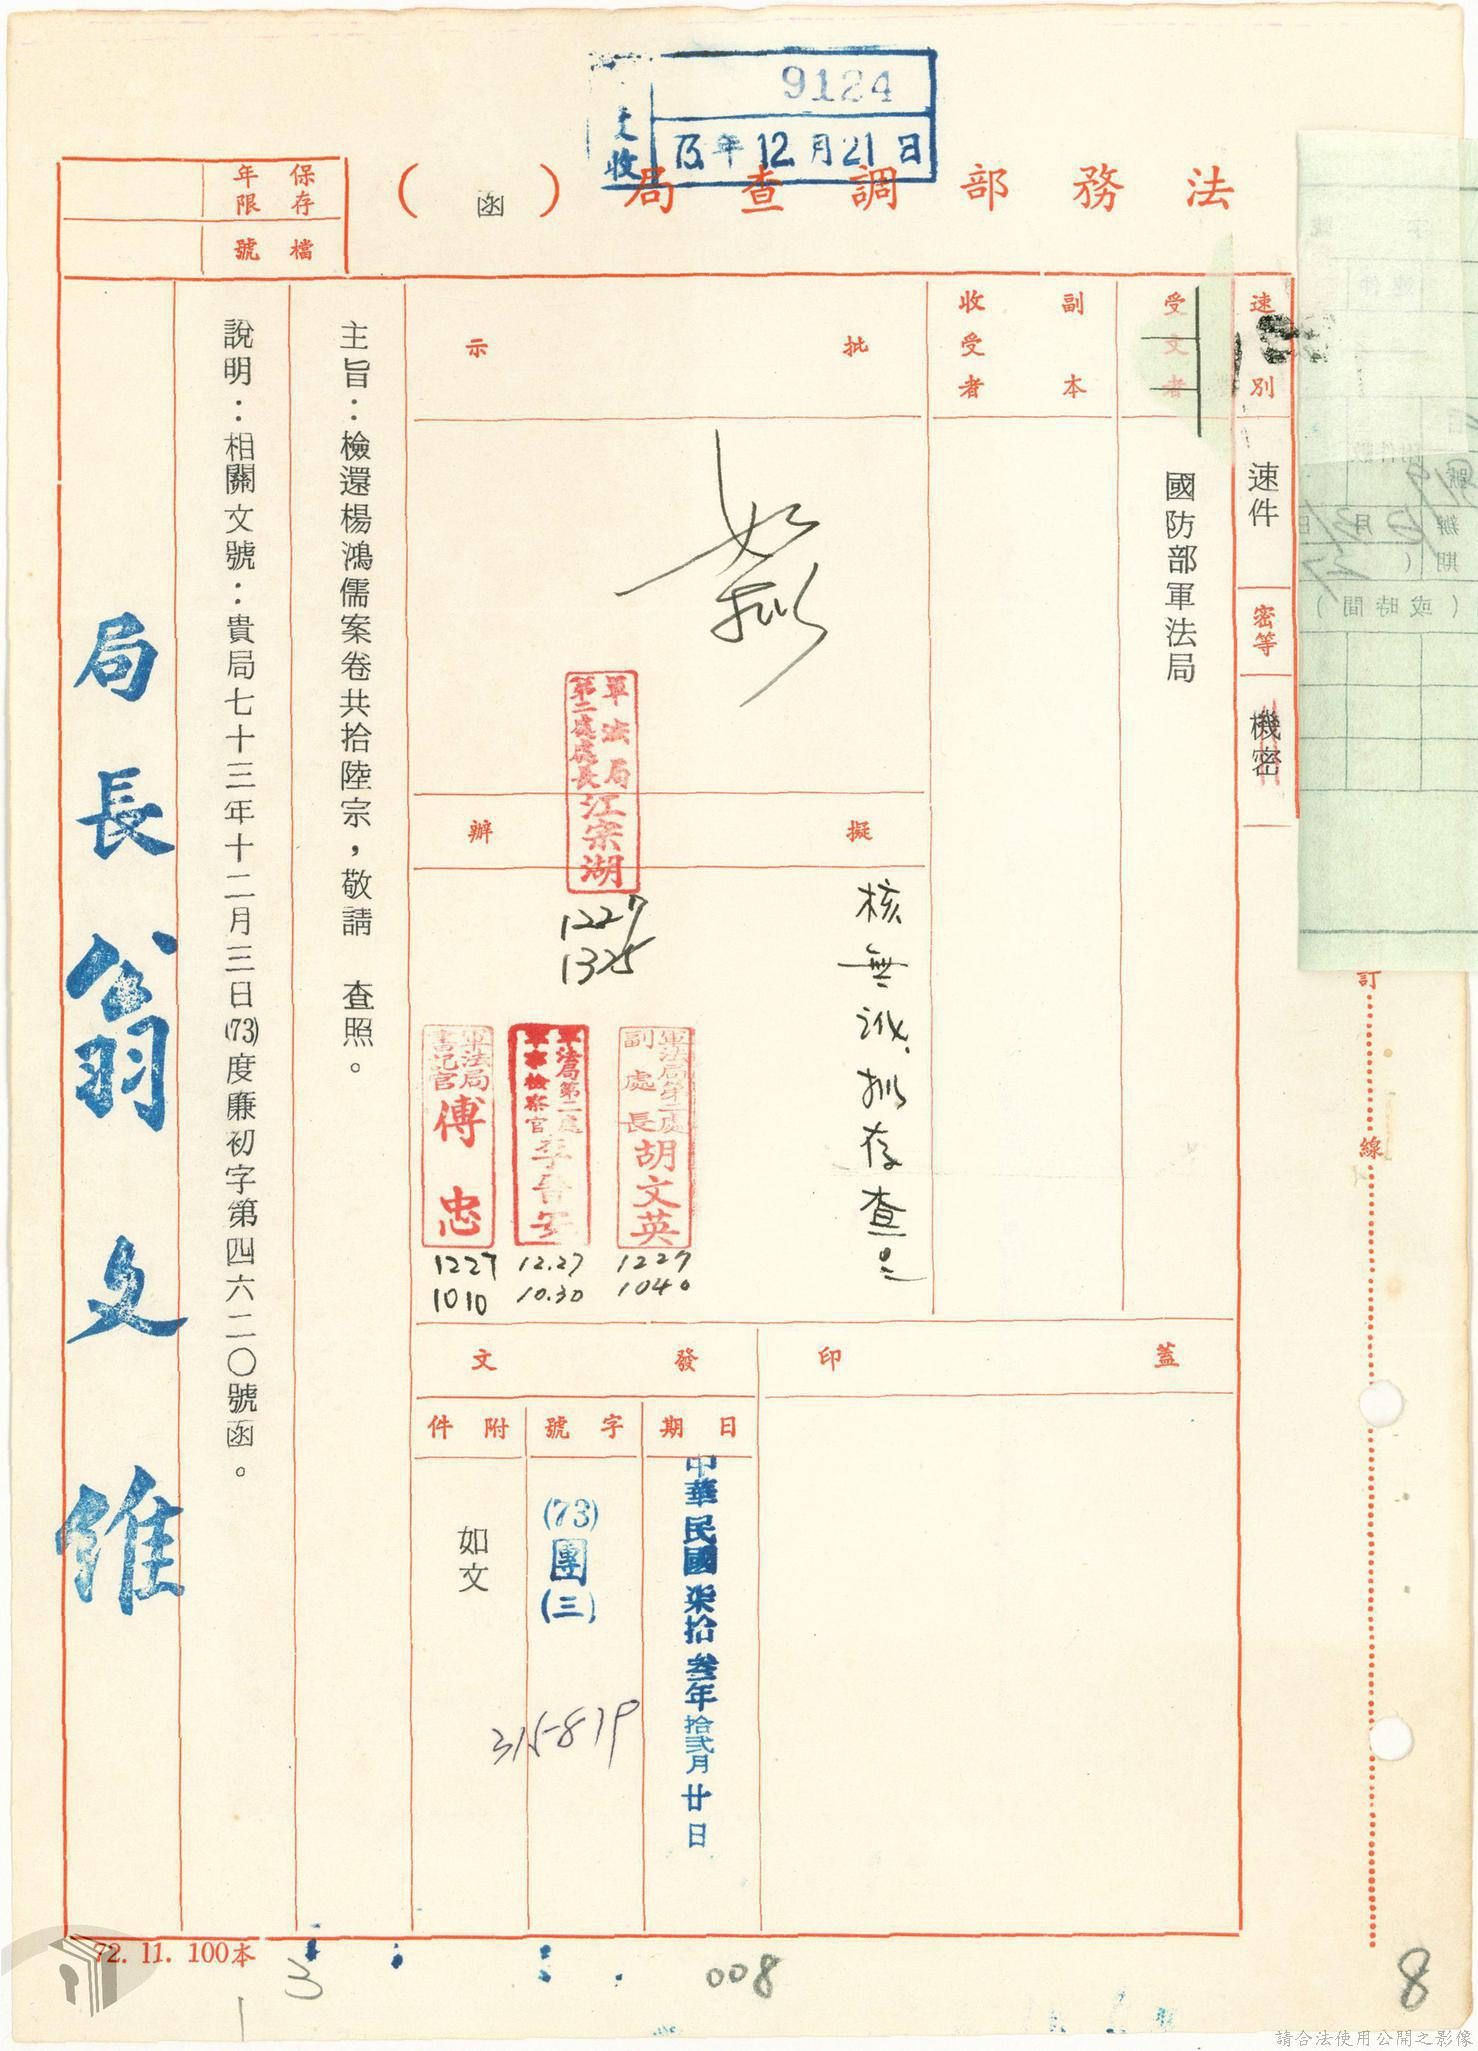 9124
文收
73年12月21日
法務部調查局（函）
保存年限
檔號
速別
速件
密等
機密
受文者
國防部軍法局
副本收受者
批示
如擬
軍法局第二處處長江宗湖
1227
1325
擬辦
核無訛，擬存查
軍法局第二處副處長胡文英
1227
1040
軍法局第二處軍事檢察官李晉安
12.27
10.30
軍法局書記官傅忠
1227
1010
蓋印
發文
日期
中華民國柒拾叁年拾貳月廿日
字號
(73)團(三)
315819
附件
如文
主旨：檢還楊鴻儒案卷共拾陸宗，敬請　查照。
說明：相關文號：貴局七十三年十二月三日(73)度廉初字第四六二〇號函。
局長翁文維
訂
線
72. 11. 100本
3
008
8
請合法使用公開之影像